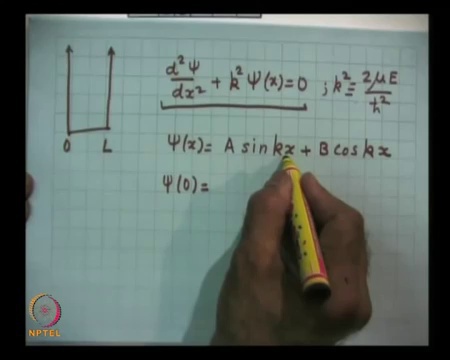 d²Ψ/dx² + k²Ψ(x)=0 ; k² = 2μE/ħ²
0 L
Ψ(x)= A sin kx + B cos kx
Ψ(0)=
NPTEL